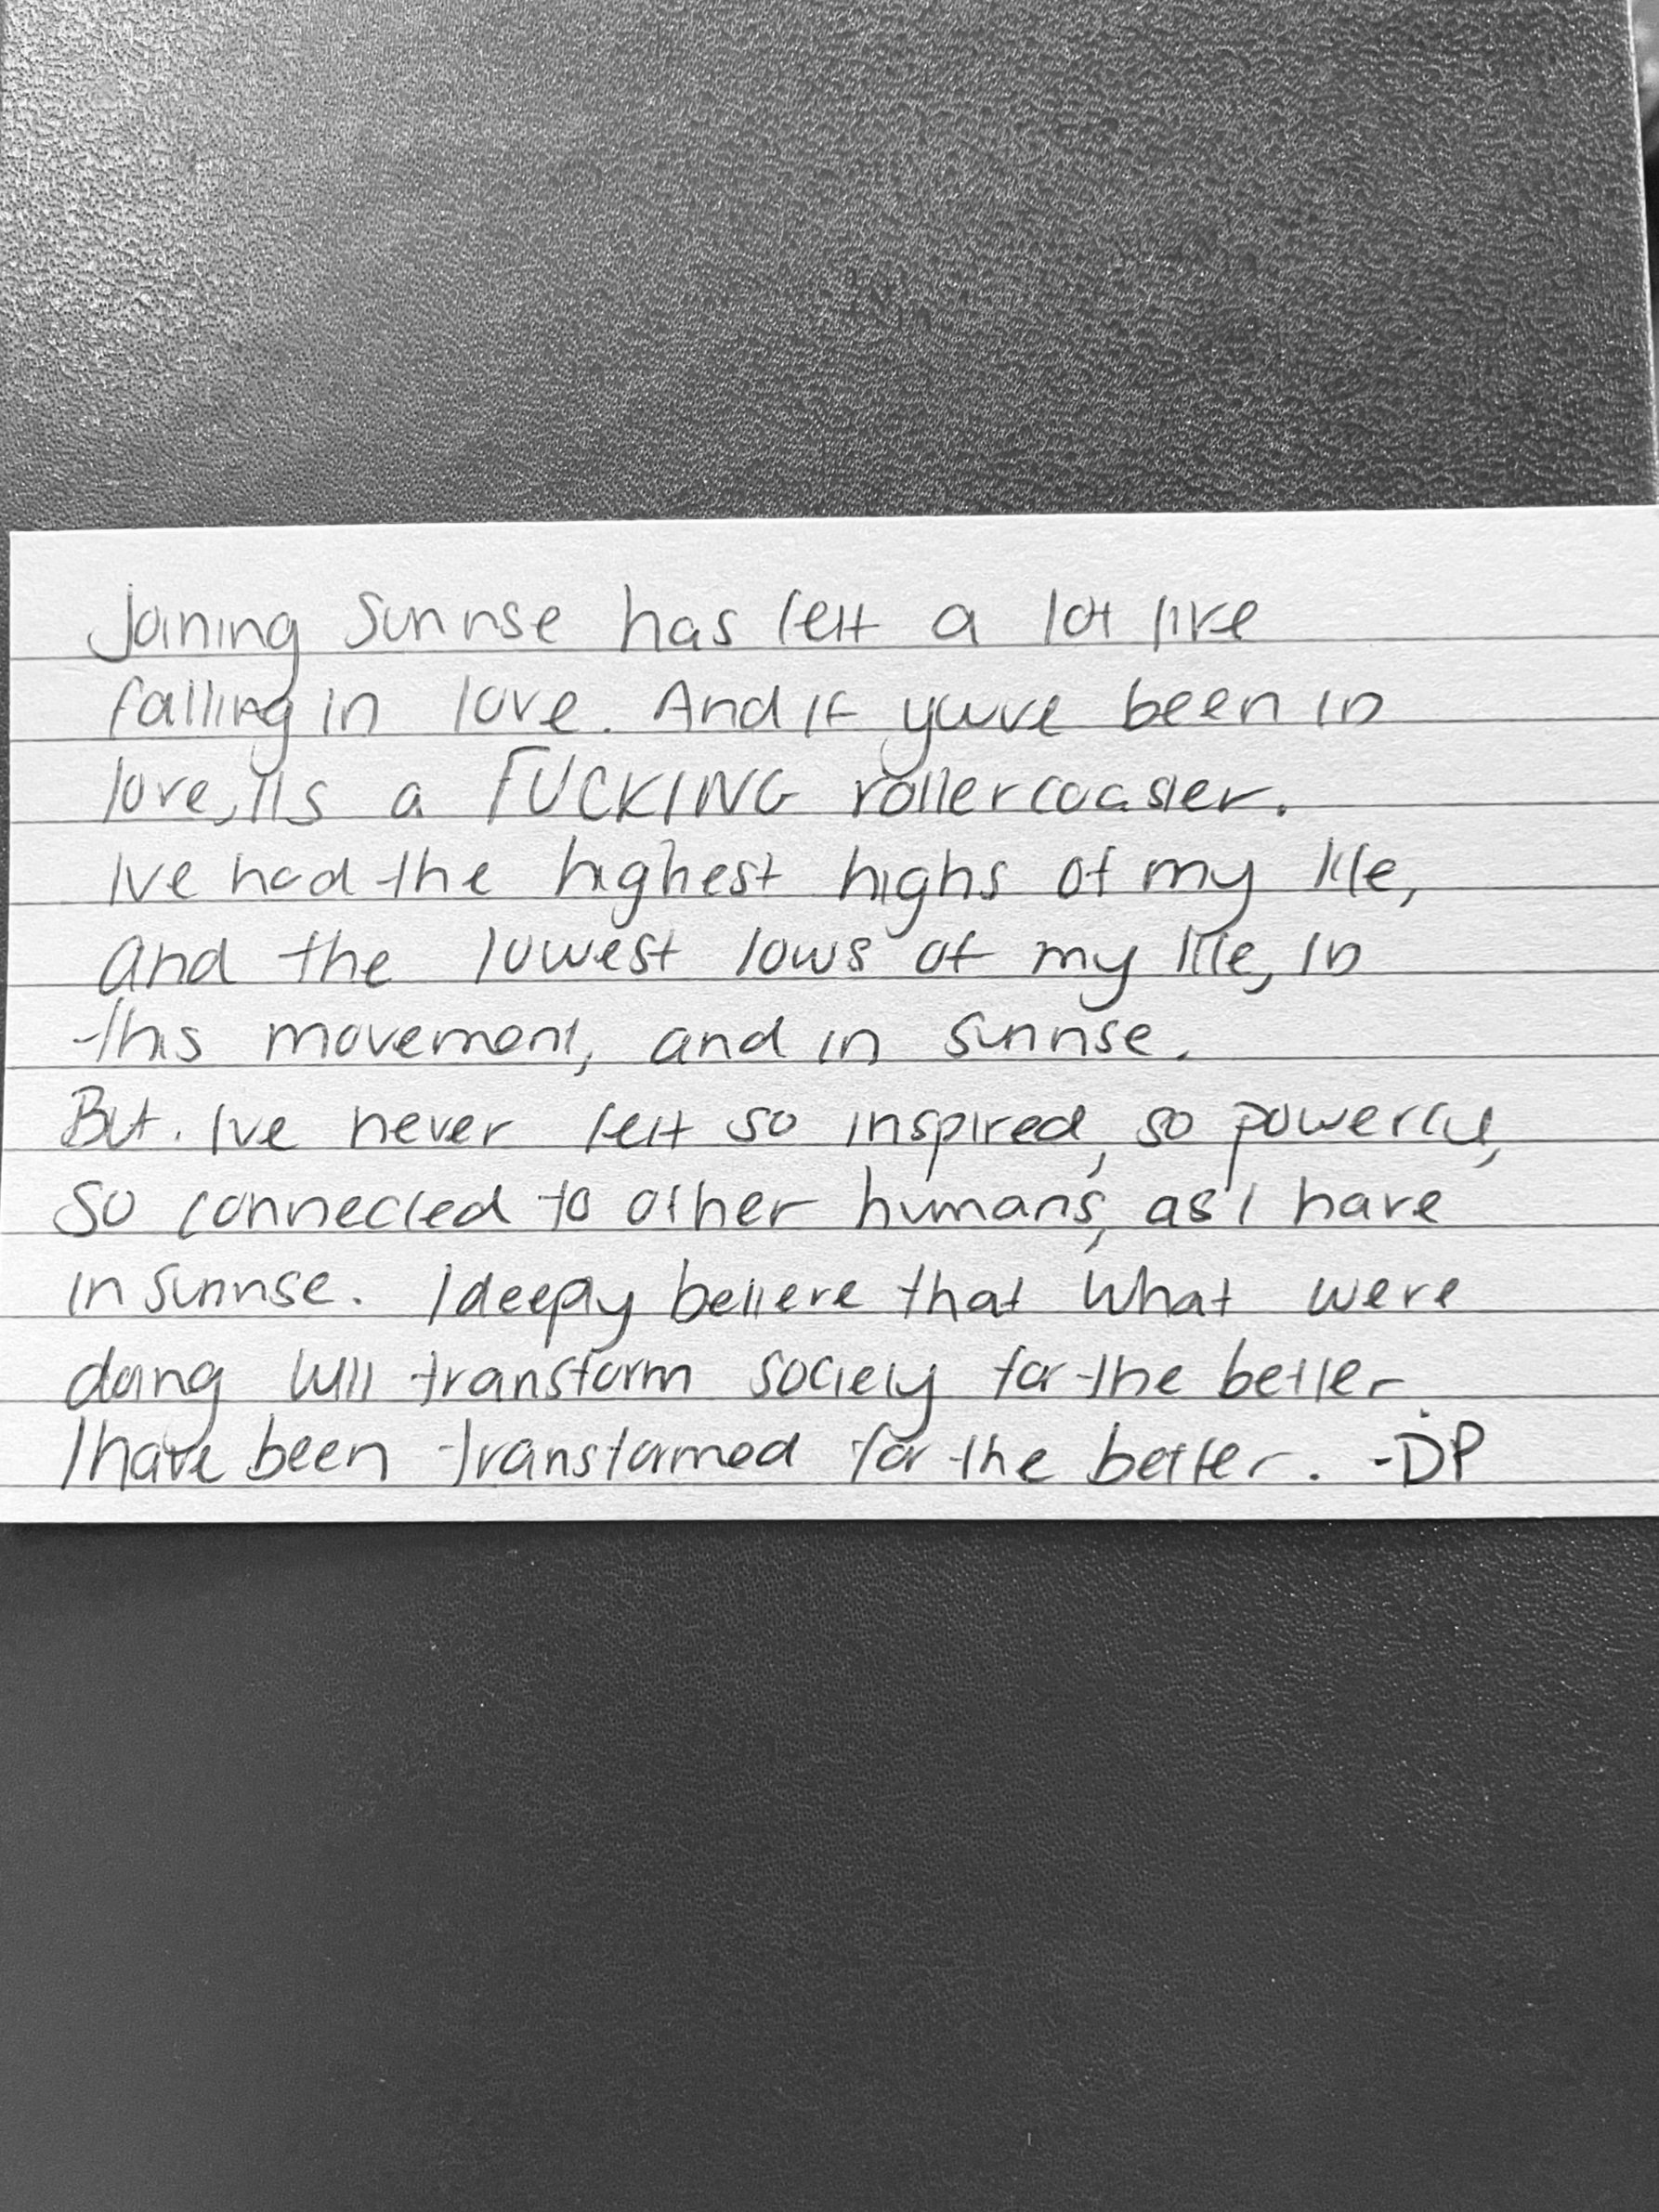 Joining Sunrise has felt a lot like
falling in love. And if youve been in
love, its a FUCKING rollercoaster.
Ive had the highest highs of my life,
and the lowest lows of my life, in
this movement, and in Sunrise.
But. Ive never felt so inspired, so powerful,
so connected to other humans, as I have
in Sunrise. I deeply believe that what were
doing will transform society for the better.
I have been transformed for the better. -DP